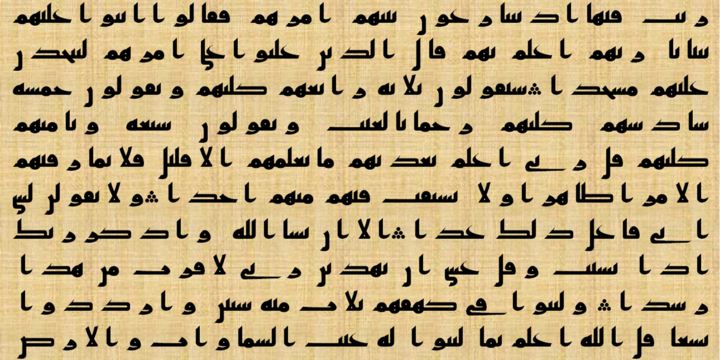 ريب فيها اذ يتنازعون بينهم امرهم فقالوا ابنوا عليهم
بنيانا ربهم اعلم بهم قال الذين غلبوا على امرهم لنتخذن
عليهم مسجدا ؞ سيقولون ثلاثة رابعهم كلبهم ويقولون خمسة
سادسهم كلبهم رجما بالغيب ويقولون سبعة وثامنهم
كلبهم قل ربي اعلم بعدتهم ما يعلمهم الا قليل فلا تمار فيهم
الا مرا ظاهرا ولا تستفت فيهم منهم احدا ؞ ولا تقولن لشي
اني فاعل ذلك غدا ؞ الا ان يشا الله واذكر ربك
اذا نسيت وقل عسى ان يهدين ربي لاقرب من هذا
رشدا ؞ ولبثوا في كهفهم ثلاث مئة سنين وازددوا
تسعا قل الله اعلم بما لبثوا له غيب السماوات والارض